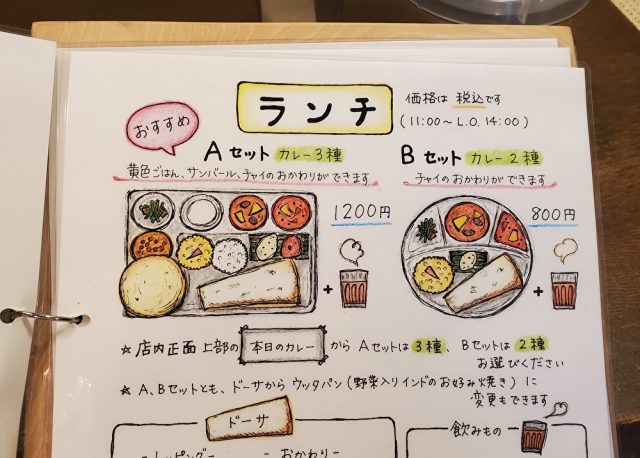 ランチ
価格は 税込です
(11:00～L.O. 14:00)
おすすめ
Aセット カレー3種
黄色ごはん、サンバール、チャイのおかわりができます
1200円
+
Bセット カレー2種
チャイのおかわりができます
800円
+
☆店内正面上部の 本日のカレー から Aセットは3種、Bセットは2種
お選びください
☆A、Bセットとも、ドーサから ウッタパン(野菜入りインドのお好み焼き)に
変更もできます
ドーサ
飲みもの
-トッピング-
-おかわり-